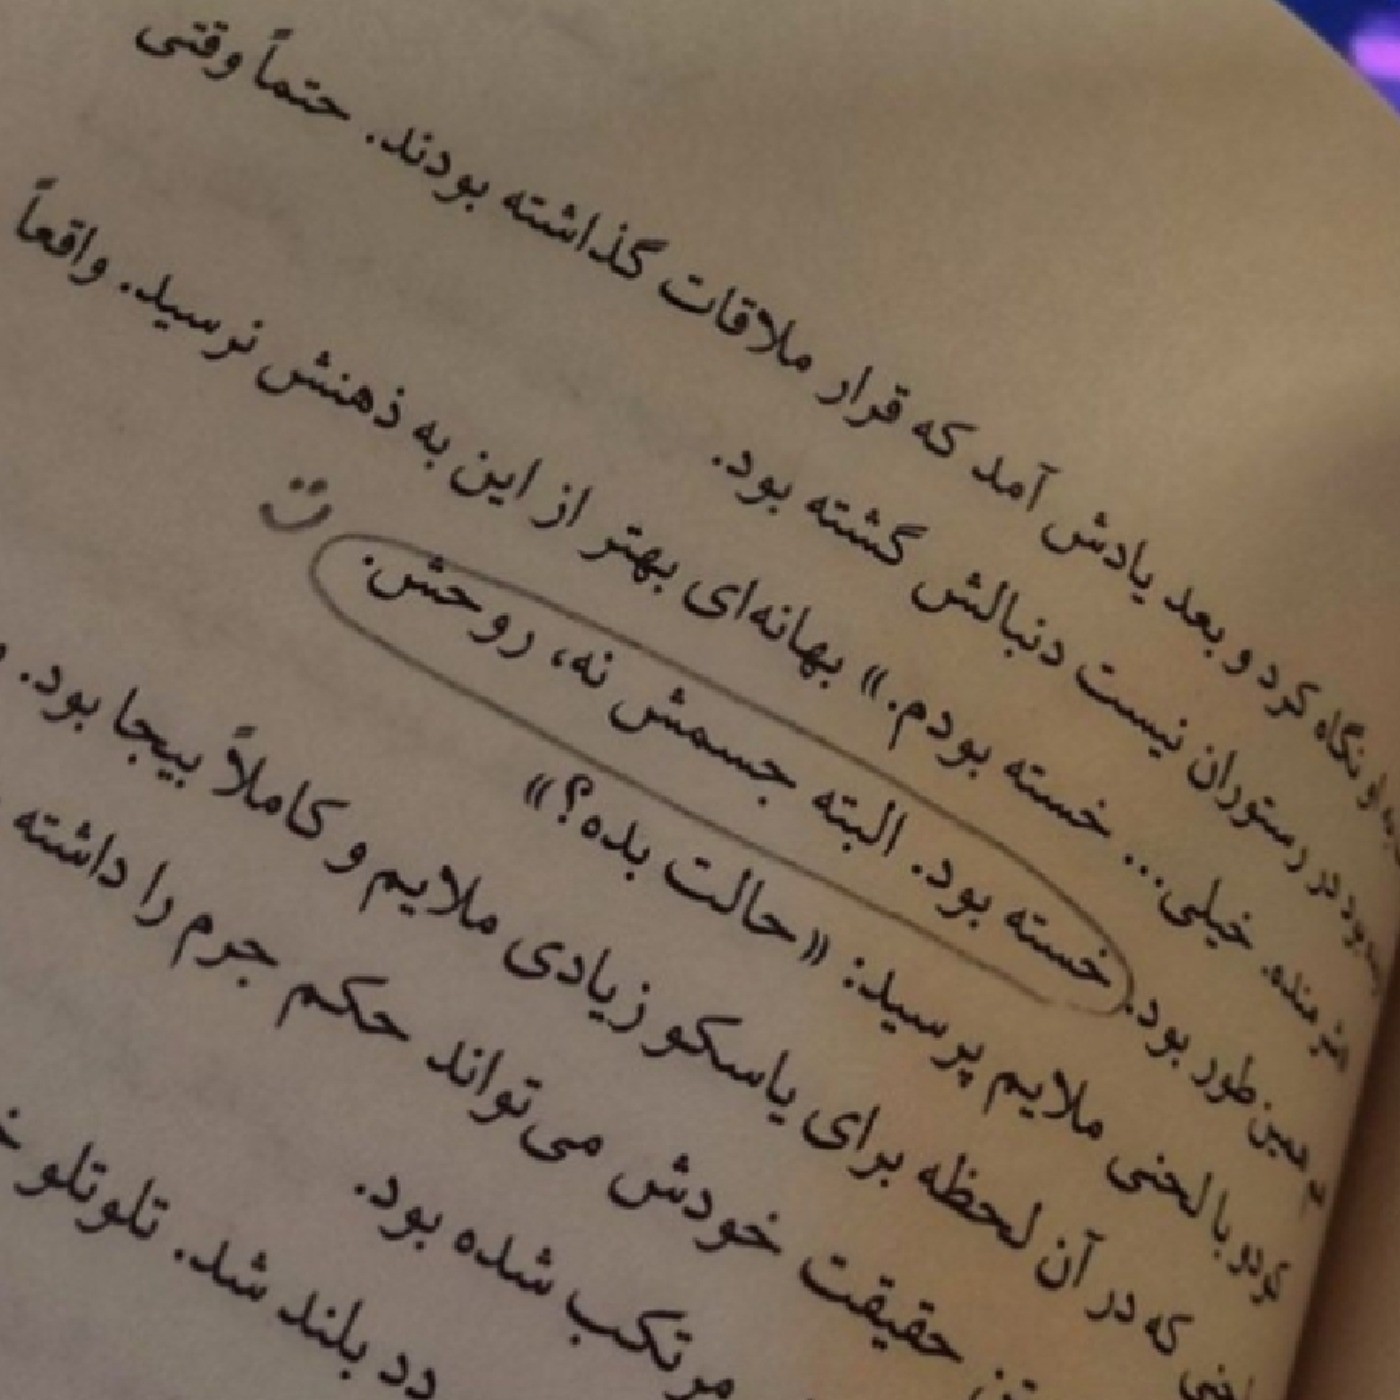 نگاه کرد و بعد یادش آمد که قرار ملاقات گذاشته بودند. حتماً وقتی
بود در رستوران نیست دنبالش گشته بود.
خیلی... خسته بودم.» بهانه‌ای بهتر از این به ذهنش نرسید. واقعاً
همین‌طور بود. خسته بود. البته جسمش نه، روحش.
با لحنی ملایم پرسید: «حالت بده؟»
که در آن لحظه برای یاسکو زیادی ملایم و کاملاً بیجا بود.
حقیقت خودش می‌تواند حکم جرم را داشته
مرتکب شده بود.
بلند شد. تلوتلو